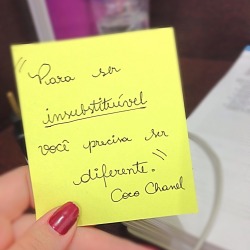 "Para ser
insubstituível
você precisa ser
diferente."
Coco Chanel